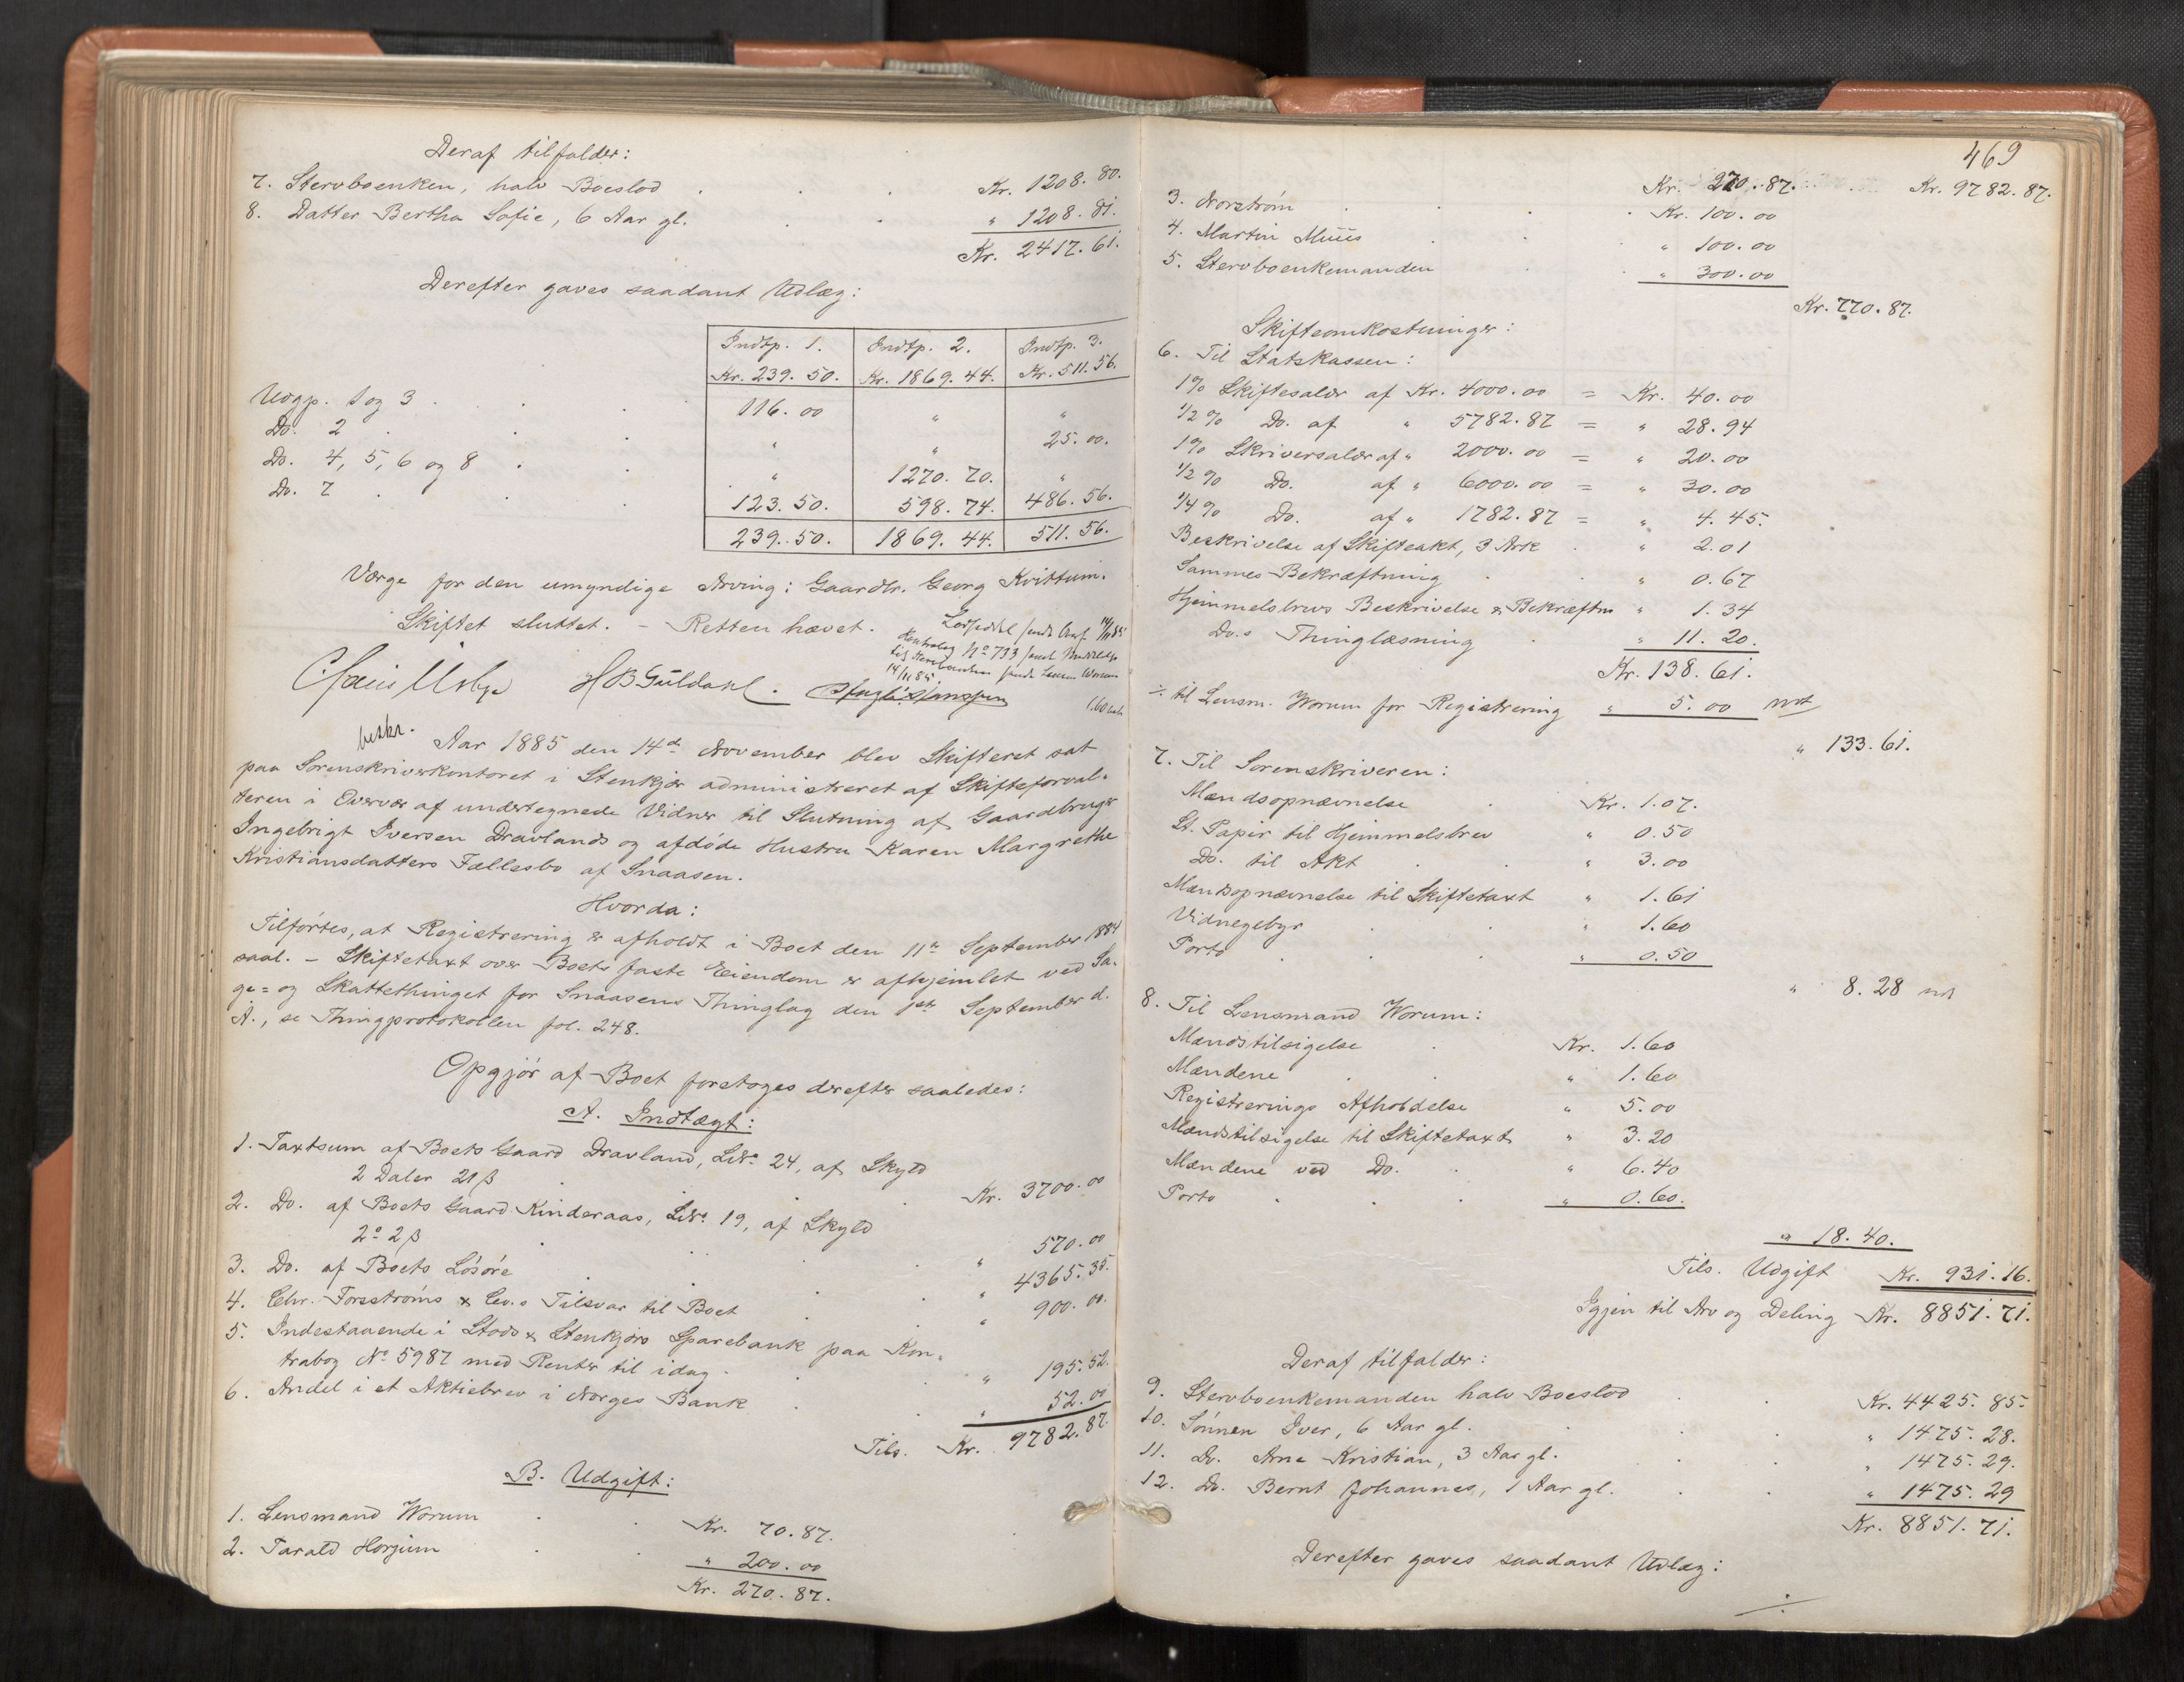 Deraf tilfalder:
7. Stervboenken, halv Boeslod . . . Kr. 1208. 80.
8. Datter Bertha Sofie, 6 Aar gl. . . " 1208. 81.
Kr. 2417. 61.
Derefter gaves saadant Udlæg:
Indtp. 1. Indtp. 2. Indtp. 3.
Kr. 239. 50. Kr. 1869. 44. Kr. 511. 56.
Udgp. 1 og 3 . . . 116. 00 " "
Do. 2 . . . " " 25. 00.
Do. 4, 5, 6 og 8 . . " 1270. 70. "
Do. 7 . . . 123. 50. 598. 74. 486. 56.
239. 50. 1869. 44. 511. 56.
Værge for den umyndige Arving: Gaardbr. Georg Kvittum.
Skiftet sluttet. – Retten hævet.
14/11 85
No 733
14/11 85
H B Guldahl.
1.60
beskr.
Aar 1885 den 14de November blev Skifteret sat
paa Sorenskriverkontoret i Stenkjær administreret af Skifteforval-
teren i Overvær af undertegnede Vidner til Slutning af Gaardbruger
Ingebrigt Iversen Dravlands og afdøde Hustru Karen Margrethe
Kristiansdatters Fællesbo af Snaasen.
Hvorda:
Tilførtes, at Registrering er afholdt i Boet den 11te September 1884
saal. – Skiftetaxt over Boets faste Eiendom er afhjemlet ved Sa-
ge= og Skattethinget for Snaasens Thinglag den 1ste September d.
A., se Thingprotokollen fol. 248.
Opgjør af Boet foretoges derefter saaledes:
A. Indtægt:
1. Taxtsum af Boets Gaard Dravland, LNo. 24, af Skyld
2 Daler 21 ß . . . Kr. 3700. 00
2. Do. af Boets Gaard Kinderaas, LNo. 19, af Skyld
2 o 2 ß . . . " 570. 00
3. Do. af Boets Løsøre . . . " 4365. 35.
4. Chr. Forsstrøms & Co.s Tilsvar til Boet . . " 900. 00.
5. Indestaaende i Stods & Stenkjærs Sparebank paa Kon-
trabog No 5987 med Renter til idag . . " 195. 52.
6. Andel i et Aktiebrev i Norges Bank . . " 52. 00
Tils. Kr. 9782. 87.
B. Udgift:
1. Lensmand Worum . . Kr. 70. 87.
2. Tarald Horjum . . " 200. 00
Kr. 270. 87.
469
Kr. 270. 87. Kr. 9782. 87.
3. Norstrøm . . . Kr. 100. 00
4. Martin Muus . . " 100. 00
5. Stervboenkemanden . . " 300. 00
Kr. 770. 87.
Skifteomkostninger:
6. Til Statskassen:
1% Skiftesalær af Kr. 4000. 00 = Kr. 40. 00
1/2% Do. af " 5782. 87 = " 28. 94
1% Skriversalær af " 2000. 00 = " 20. 00
1/2% Do. af " 6000. 00 = " 30. 00
1/4% Do. af " 1782. 87 = " 4. 45.
Beskrivelse af Skifteakt, 3 Ark . " 2. 01
Sammes Bekræftning . " 0. 67
Hjemmelsbrevs Beskrivelse & Bekræftn " 1. 34
Do.s Thinglæsning . " 11. 20.
Kr. 138. 61.
÷ til Lensm. Worum for Registrering " 5. 00 ndt
" 133. 61.
7. Til Sorenskriveren:
Mændsopnævnelse . Kr. 1. 07.
St. Papir til Hjemmelsbrev " 0. 50
Do. til Akt . . " 3. 00
Mændsopnævnelse til Skiftetaxt " 1. 61
Vidnegebyr . . " 1. 60
Porto . . . " 0. 50
" 8. 28 ndt
8. Til Lensmand Worum:
Mændstilsigelse . Kr. 1. 60
Mændene . . " 1. 60
Registrerings Afholdelse " 5. 00
Mændstilsigelse til Skiftetaxt " 3. 20
Mændene ved Do. . " 6. 40
Porto . . . " 0. 60.
" 18. 40.
Tils. Udgift Kr. 931. 16.
Igjen til Arv og Deling Kr. 8851. 71.
Deraf tilfalder:
9. Stervboenkemanden halv Boeslod . Kr. 4425. 85.
10. Sønnen Iver, 6 Aar gl. . . . " 1475. 28.
11. Do. Arne Kristian, 3 Aar gl. . . " 1475. 29.
12. Do. Bernt Johannes, 1 Aar gl. . . " 1475. 29
Kr. 8851. 71.
Derefter gaves saadant Udlæg:
÷